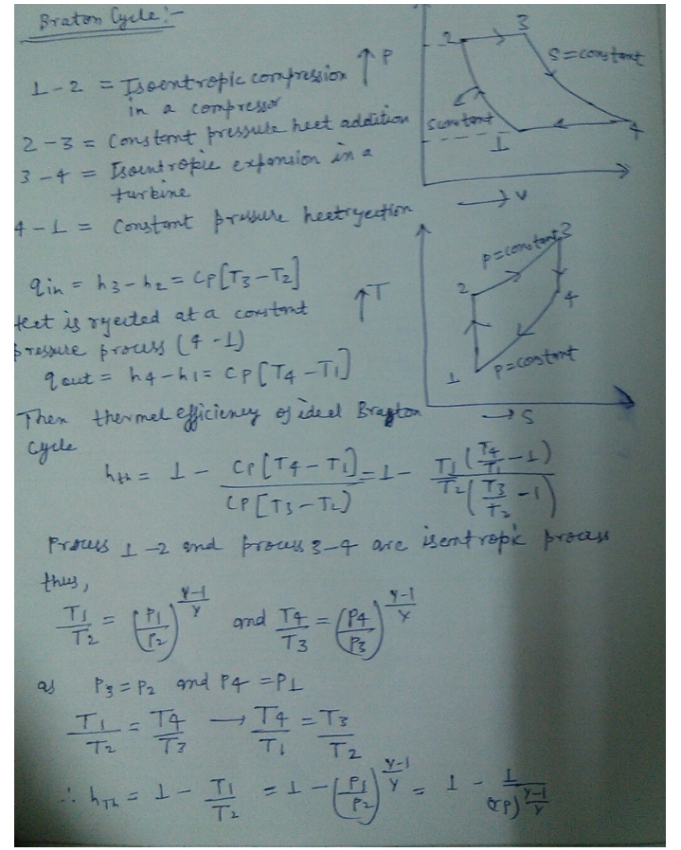 Braton Cycle:-
1-2 = Isoentropic compression
in a compressor
2-3 = Constant pressure heet addition
3-4 = Isoentropic expansion in a
turbine
4-1 = Constant pressure heet rejection
↑ P
2
3
S=constant
Sconstant
1
4
→ V
qin = h3-h2 = CP[T3-T2]
Heet is rejected at a constant
pressure process (4-1)
qout = h4-h1 = CP[T4-T1]
↑T
P=constant
3
2
4
1
P=constant
→ S
Then thermel efficiency of ideel Brayton
Cycle
hth = 1 - CP[T4-T1] / CP[T3-T2] = 1 - T1(T4/T1 - 1) / T2(T3/T2 - 1)
Process 1-2 and process 3-4 are isentropic process
thus,
T1/T2 = (P1/P2)^(γ-1/γ) and T4/T3 = (P4/P3)^(γ-1/γ)
as P3=P2 and P4=P1
T1/T2 = T4/T3 → T4/T1 = T3/T2
∴ hTh = 1 - T1/T2 = 1 - (P1/P2)^(γ-1/γ) = 1 - 1/(rp)^(γ-1/γ)